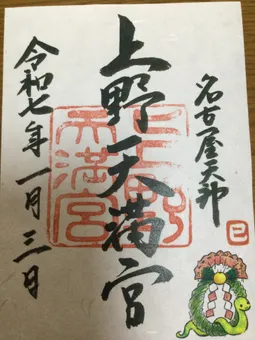 名古屋天神
巳
上野天満宮
上野天満宮
令和七年一月三日